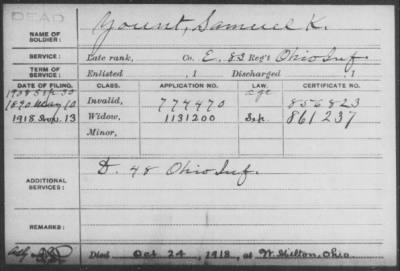 DEAD
NAME OF SOLDIER: Yount, Samuel K.
SERVICE: Late rank, Co. E. 83 Reg't Ohio Inf.
TERM OF SERVICE: Enlisted , 1 Discharged , 1
DATE OF FILING. CLASS. APPLICATION NO. LAW. CERTIFICATE NO.
1890 May 10 Invalid, 774470 Age 856823
1918 13 Widow, 1131200 Sep. 861237
Minor,
ADDITIONAL SERVICES: D. 48 Ohio Inf.
REMARKS:
Died Oct 24, 1918, at W. Milton, Ohio